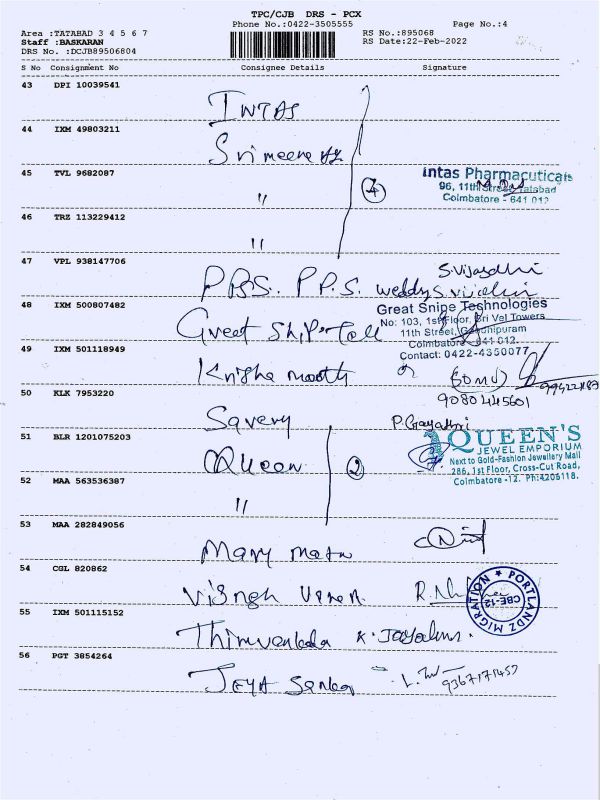 TPC/CJB DRS - PCX
Phone No.:0422-3505555
Page No.:4
Area :TATABAD 3 4 5 6 7
RS No.:895068
Staff :BASKARAN
RS Date:22-Feb-2022
DRS No. :DCJB89506804
S No Consignment No Consignee Details Signature
43 DPI 10039541
INTAS
44 IXM 49803211
Sri meena
45 TVL 9682087
"
4
Intas Pharmacuticals
96, 11th Street, Tatabad
Coimbatore - 641 012
46 TRZ 113229412
"
47 VPL 938147706
S.Vijayadhi
P.B.S. P.P.S. weddys
48 IXM 500807482
Great Ship
Great Snipe Technologies
No: 103, 1st Floor, Sri Vel Towers
11th Street, Gandhipuram
Coimbatore - 641 012.
Contact: 0422-4350077
49 IXM 501118949
Krisha mooth
9080445601
50 KLK 7953220
Savery
P. Gayathri
51 BLR 1201075203
Queen
2
QUEEN'S
JEWEL EMPORIUM
Next to Gold-Fashion Jewellery Mall
286, 1st Floor, Cross-Cut Road,
Coimbatore -12. Ph:4206118.
52 MAA 563536387
"
53 MAA 282849056
Mary mata
54 CGL 820862
PORTLANDZ MIGRATION
CBE-12
55 IXM 501115152
K. Jayalms.
56 PGT 3854264
JEYA Sankar
9367171457